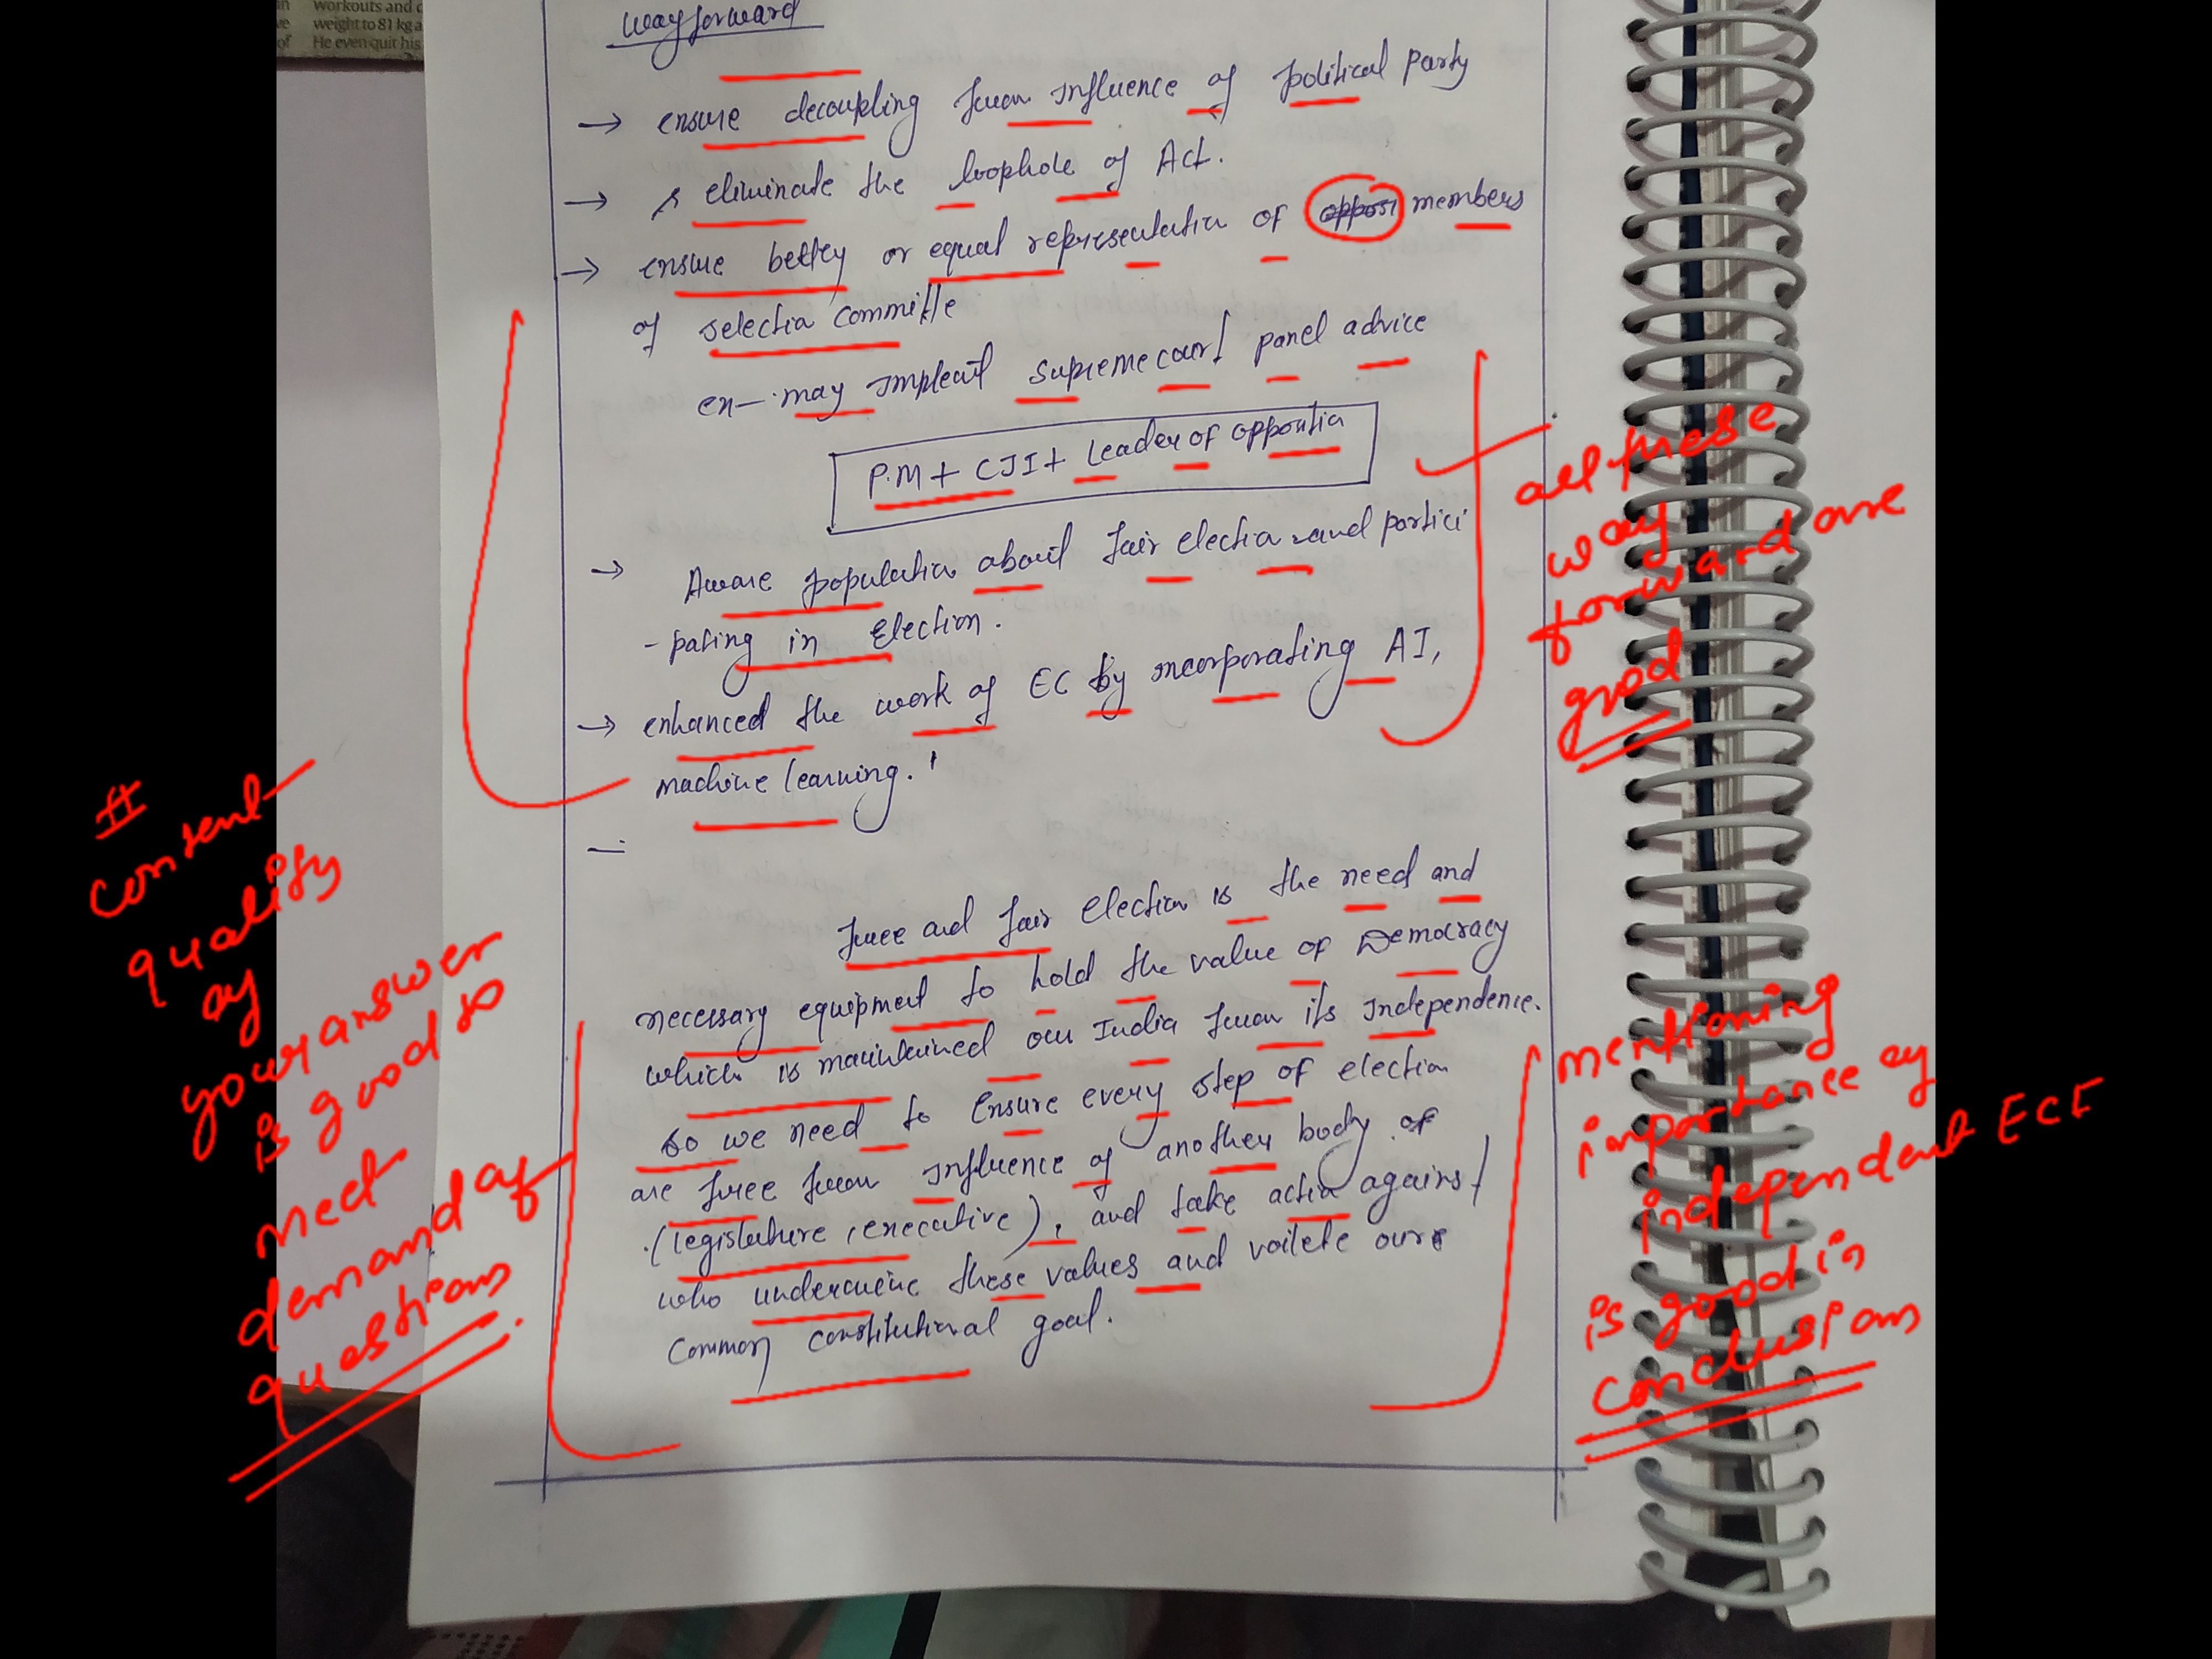 workouts and
weight to 81 kg a
of He even quit his
Way forward
→ ensure decoupling from influence of political party
→ eliminate the loophole of Act.
→ ensure better or equal representation of members
of selection committe
ex- may implement Supreme court panel advice
P.M + CJI + Leader of opposition
→ Aware population about fair election and partici
- pating in Election.
→ enhanced the work of EC by incorporating AI,
machine learning.
all these
way
forward are
good
#
Content
quality
of
your answer
is good &
meet
demand of
questions
free and fair election is the need and
necessary equipment to hold the value of Democracy
which is maintained our India from its Independence.
so we need to Ensure every step of election
are free from influence of another body of
(legislature, executive), and take action against
who undermine these values and voilete our
common constitutional goal.
mentioning
importance of
independent ECI
is good in
conclusion